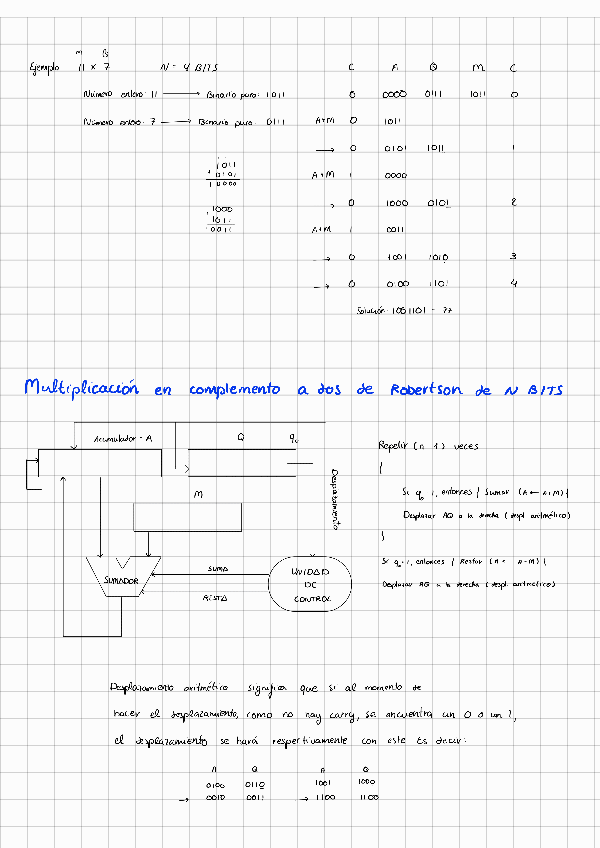 M B
Ejemplo 11 x 7 N = 4 BITS C A Q M C
Número entero: 11 → Binario puro: 1011 0 0000 0111 1011 0
Número entero: 7 → Binario puro: 0111 A+M 0 1011
→ 0 0101 1011 1
1011
+ 0101
10000
A+M 1 0000
→ 0 1000 0101 2
1000
1011
10011
A+M 1 0011
→ 0 1001 1010 3
→ 0 0100 1101 4
Solución: 1001101 = 77
Multiplicación en complemento a dos de Robertson de N BITS
Acumulador - A Q q₀
M
Desplazamiento
SUMADOR
SUMA
RESTA
UNIDAD
DE
CONTROL
Repetir (n 1) veces
{
Si q₀ 1, entonces { Sumar (A ← A+M) }
Desplazar AQ a la derecha (despl aritmético)
}
Si q₀ = 1, entonces { Restar (A = A-M) }
Desplazar AQ a la derecha (despl. aritmético)
Desplazamiento aritmético significa que si al momento de
hacer el desplazamiento, como no hay carry, se encuentra un 0 o un 1,
el desplazamiento se hará respectivamente con este Es decir:
A Q A Q
0100 0110 1001 1000
→ 0010 0011 → 1100 1100